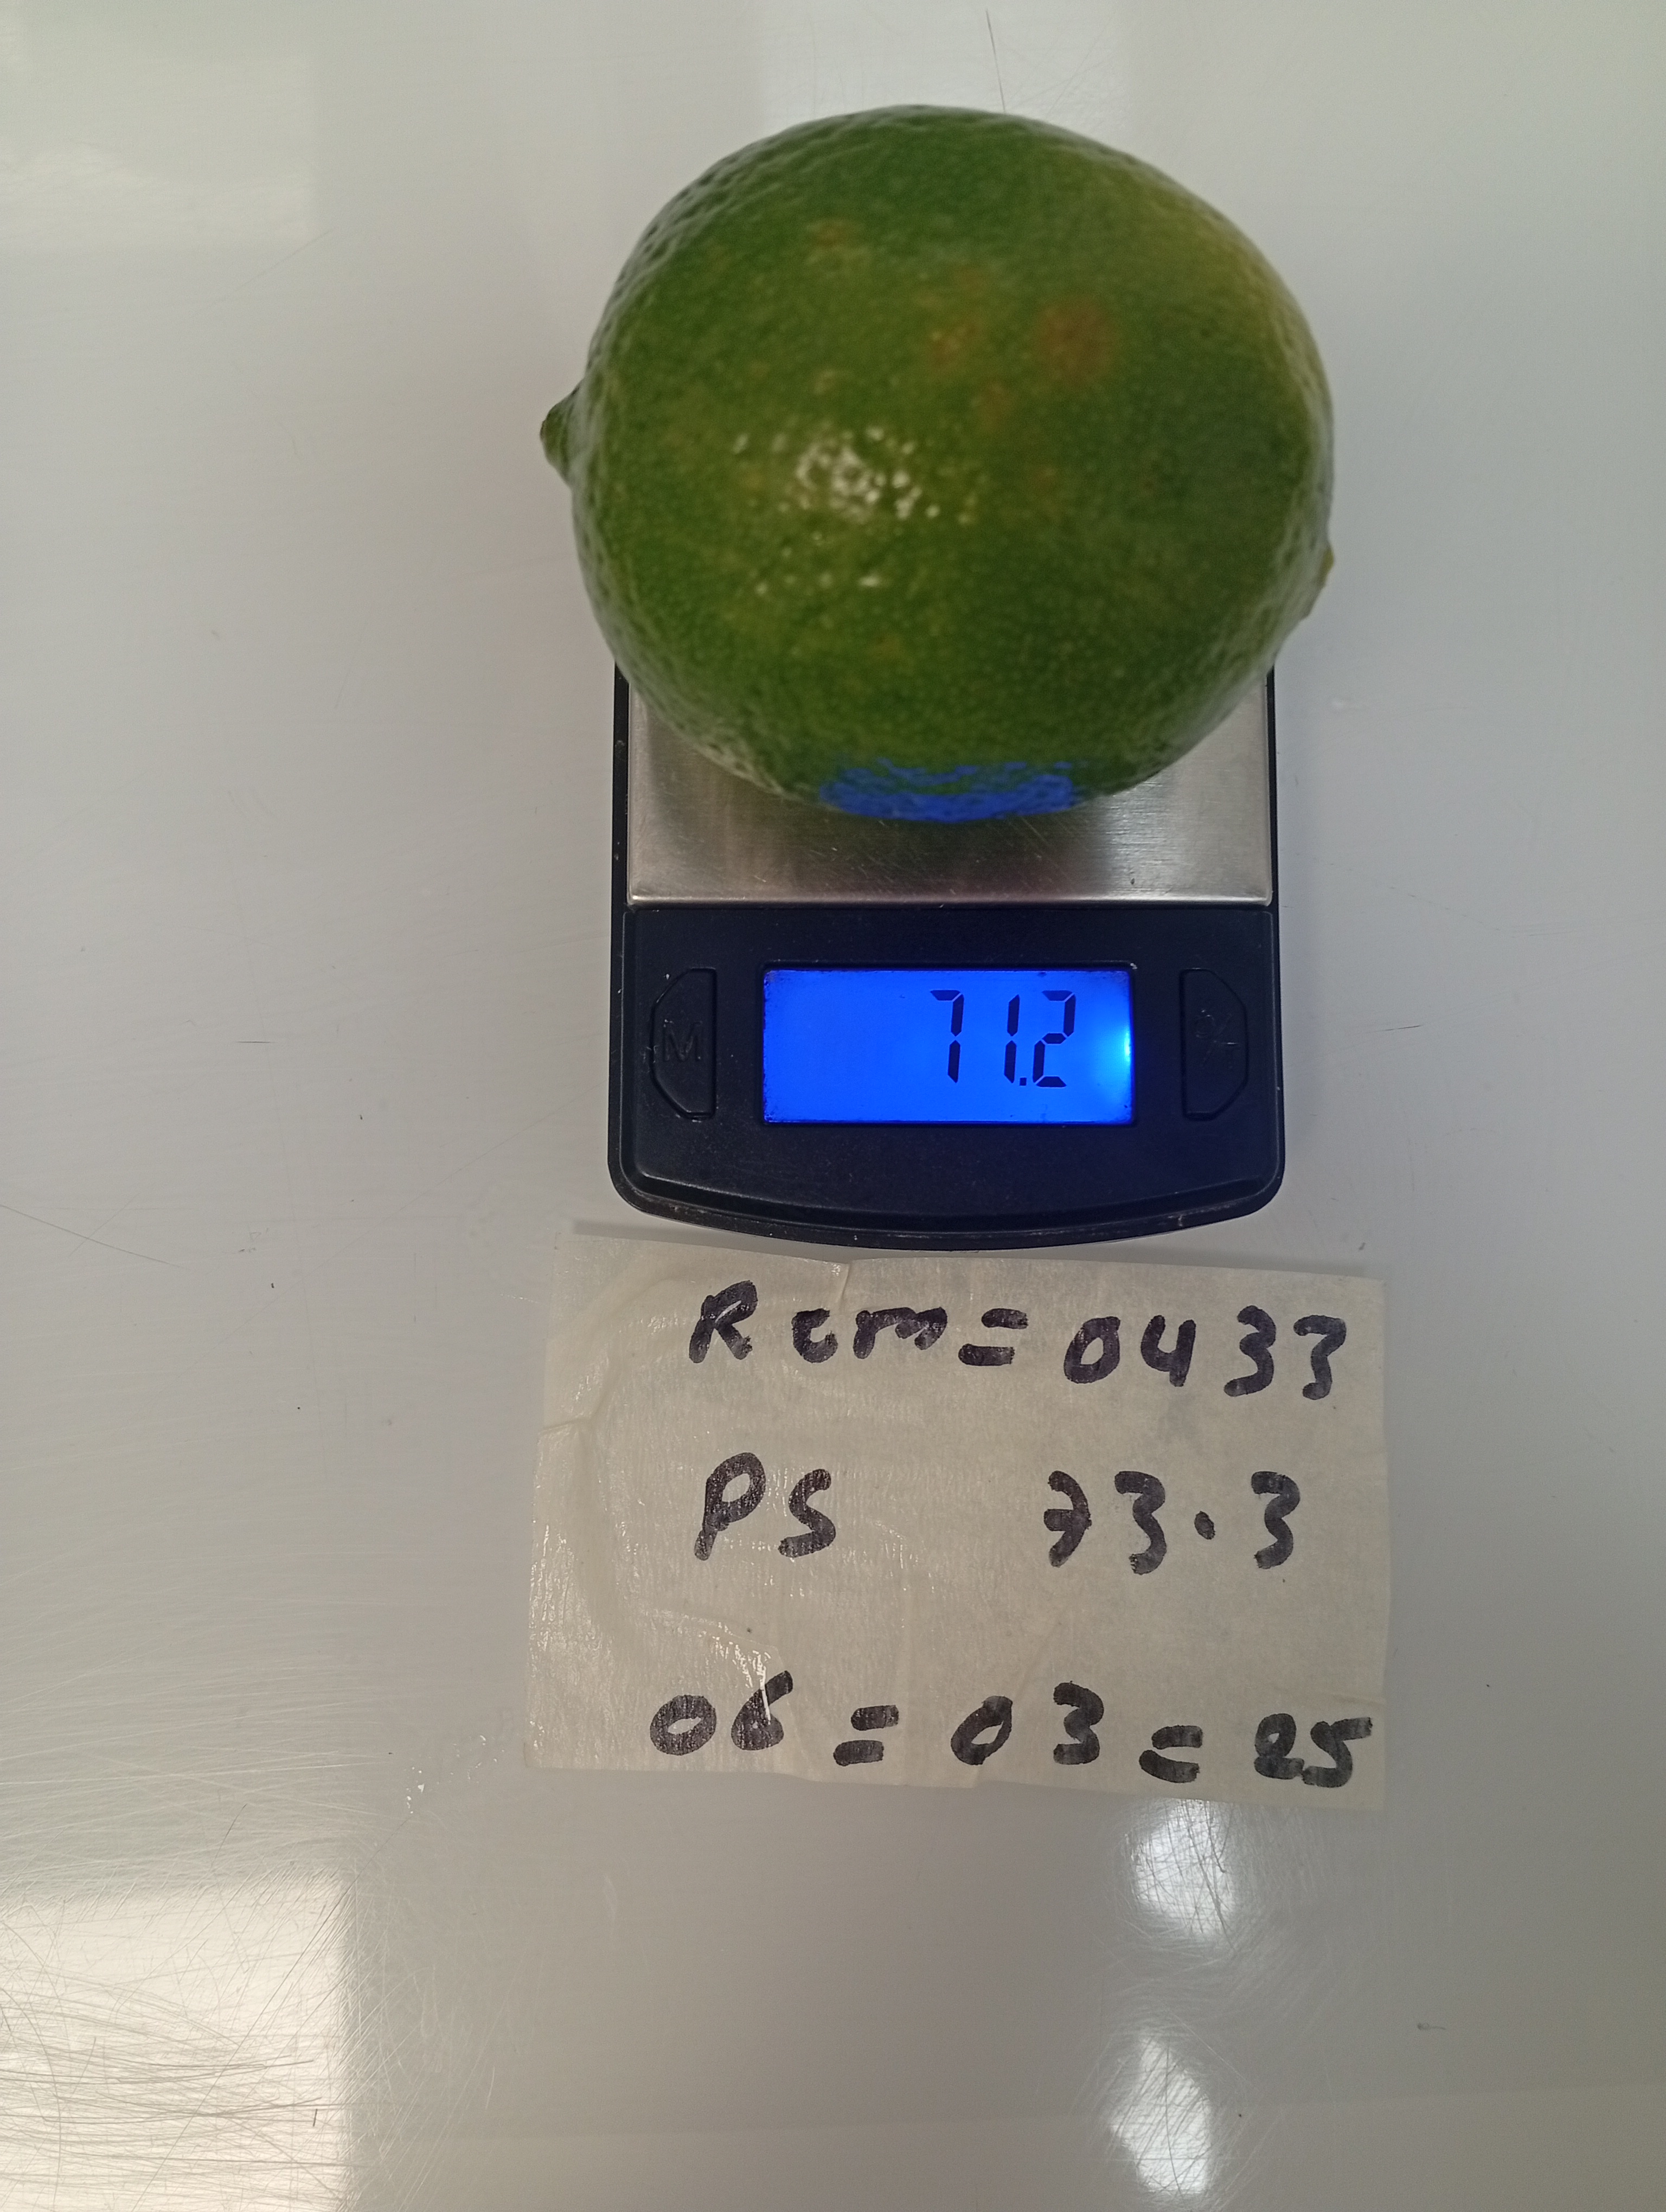 71.2
M
Rcm=0433
PS 73.3
06=03=25